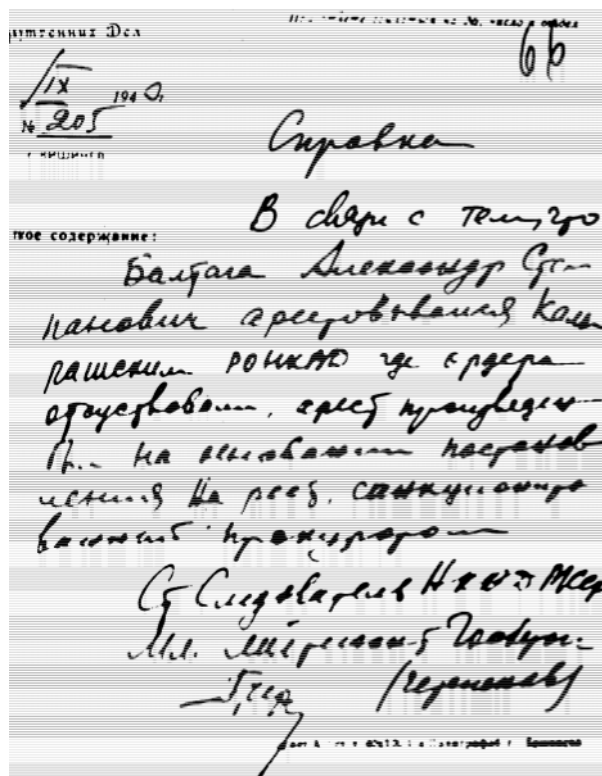 внутренних Дел
66
IX 1940
№ 205
г. Кишинев
Справка
В связи с тем, что
ткое содержание:
Балтага Александр Сте-
панович арестовывался Кала-
рашским РОНКВД где ордера
отсуствовали, арест произведен
на основании постанов
ления на арест, санкциониро
ванной прокурором
Ст Следователь НКВД МССР
Мл. лейтенант Госбезоп.